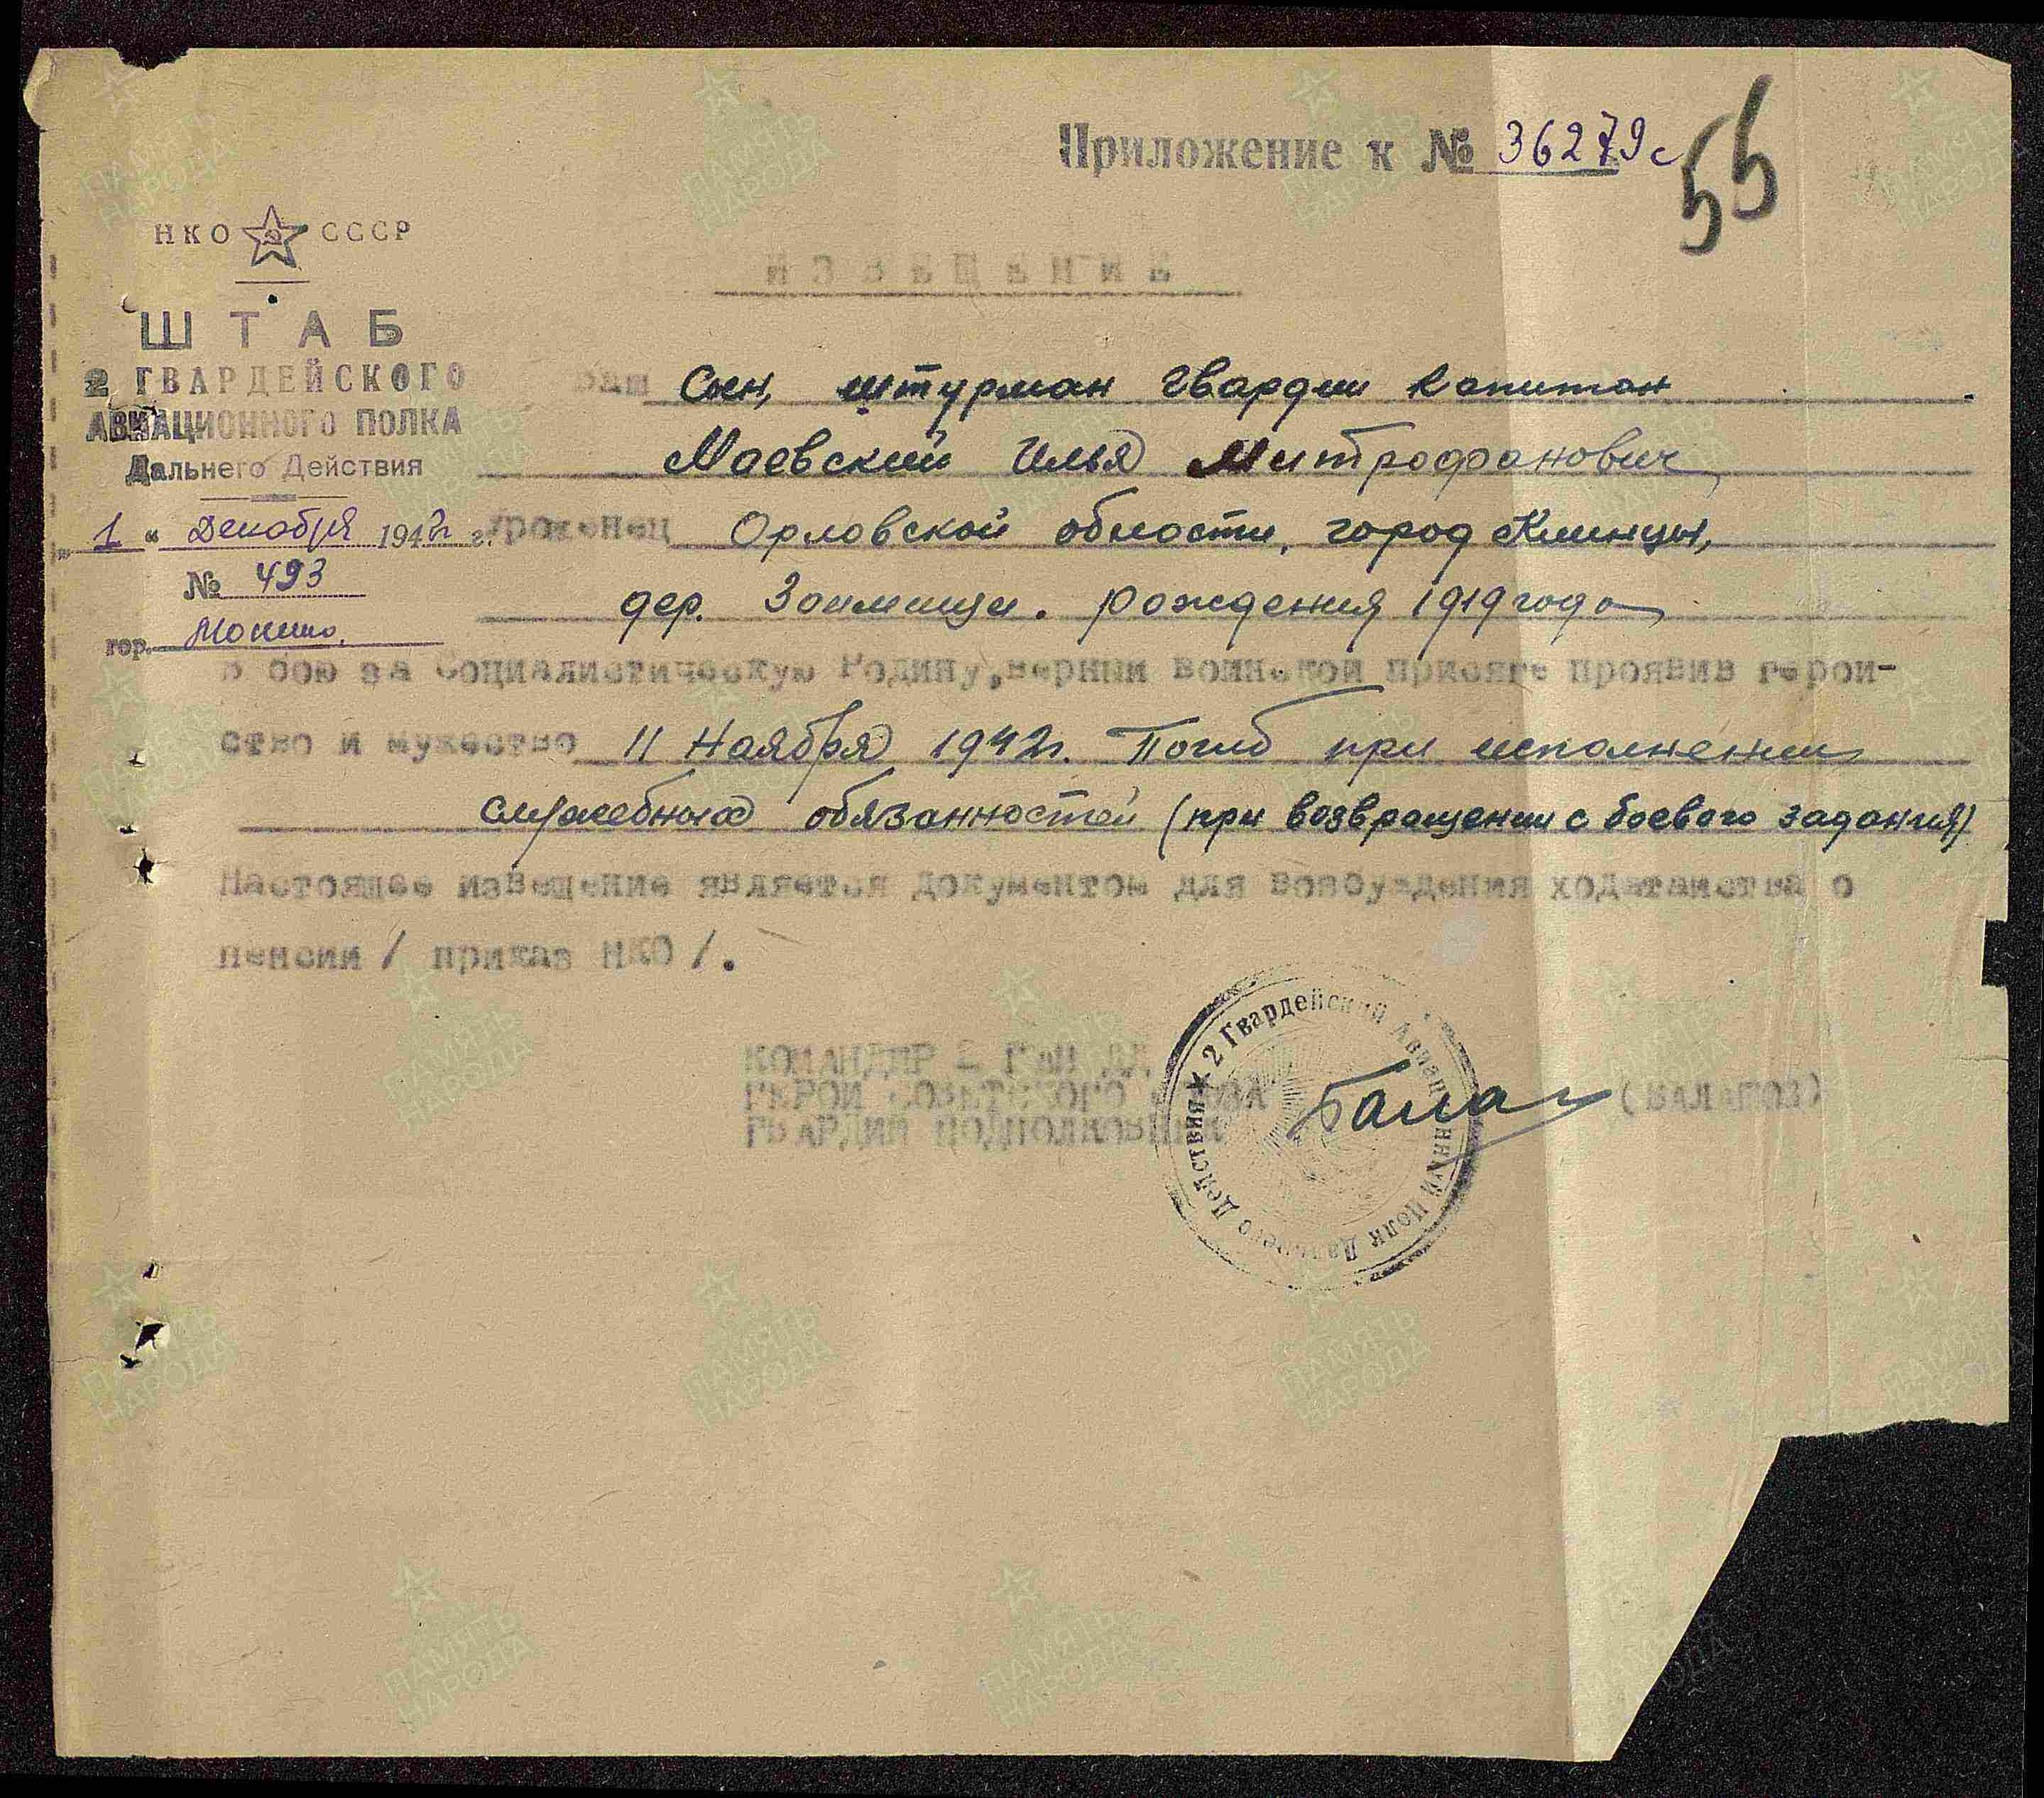 Приложение к № 36279с
55
НКО СССР
ИЗВЕЩЕНИЕ
ШТАБ
2 ГВАРДЕЙСКОГО
АВИАЦИОННОГО ПОЛКА
Дальнего Действия
„1“ Декабря 1942 г.
№ 493
гор. Монино.
Ваш Сын, штурман гвардии капитан
Маевский Илья Митрофанович
Уроженец Орловской области, город Клинцы,
дер. Займищи. рождения 1919 года
В бою за Социалистическую Родину, верный воинской присяге проявив герой-
ство и мужество 11 Ноября 1942г. Погиб при исполнении
служебных обязанностей (при возвращении с боевого задания)
Настоящее извещение является документом для возбуждения ходатайства о
пенсии / приказ НКО /.
КОМАНДИР 2 ГАП ДД
ГЕРОЙ СОВЕТСКОГО СОЮЗА
ГВАРДИИ ПОДПОЛКОВНИК
Балаш (БАЛАШОВ)
★ 2 Гвардейский Авиационный Полк Дальнего Действия
ПАМЯТЬ НАРОДА